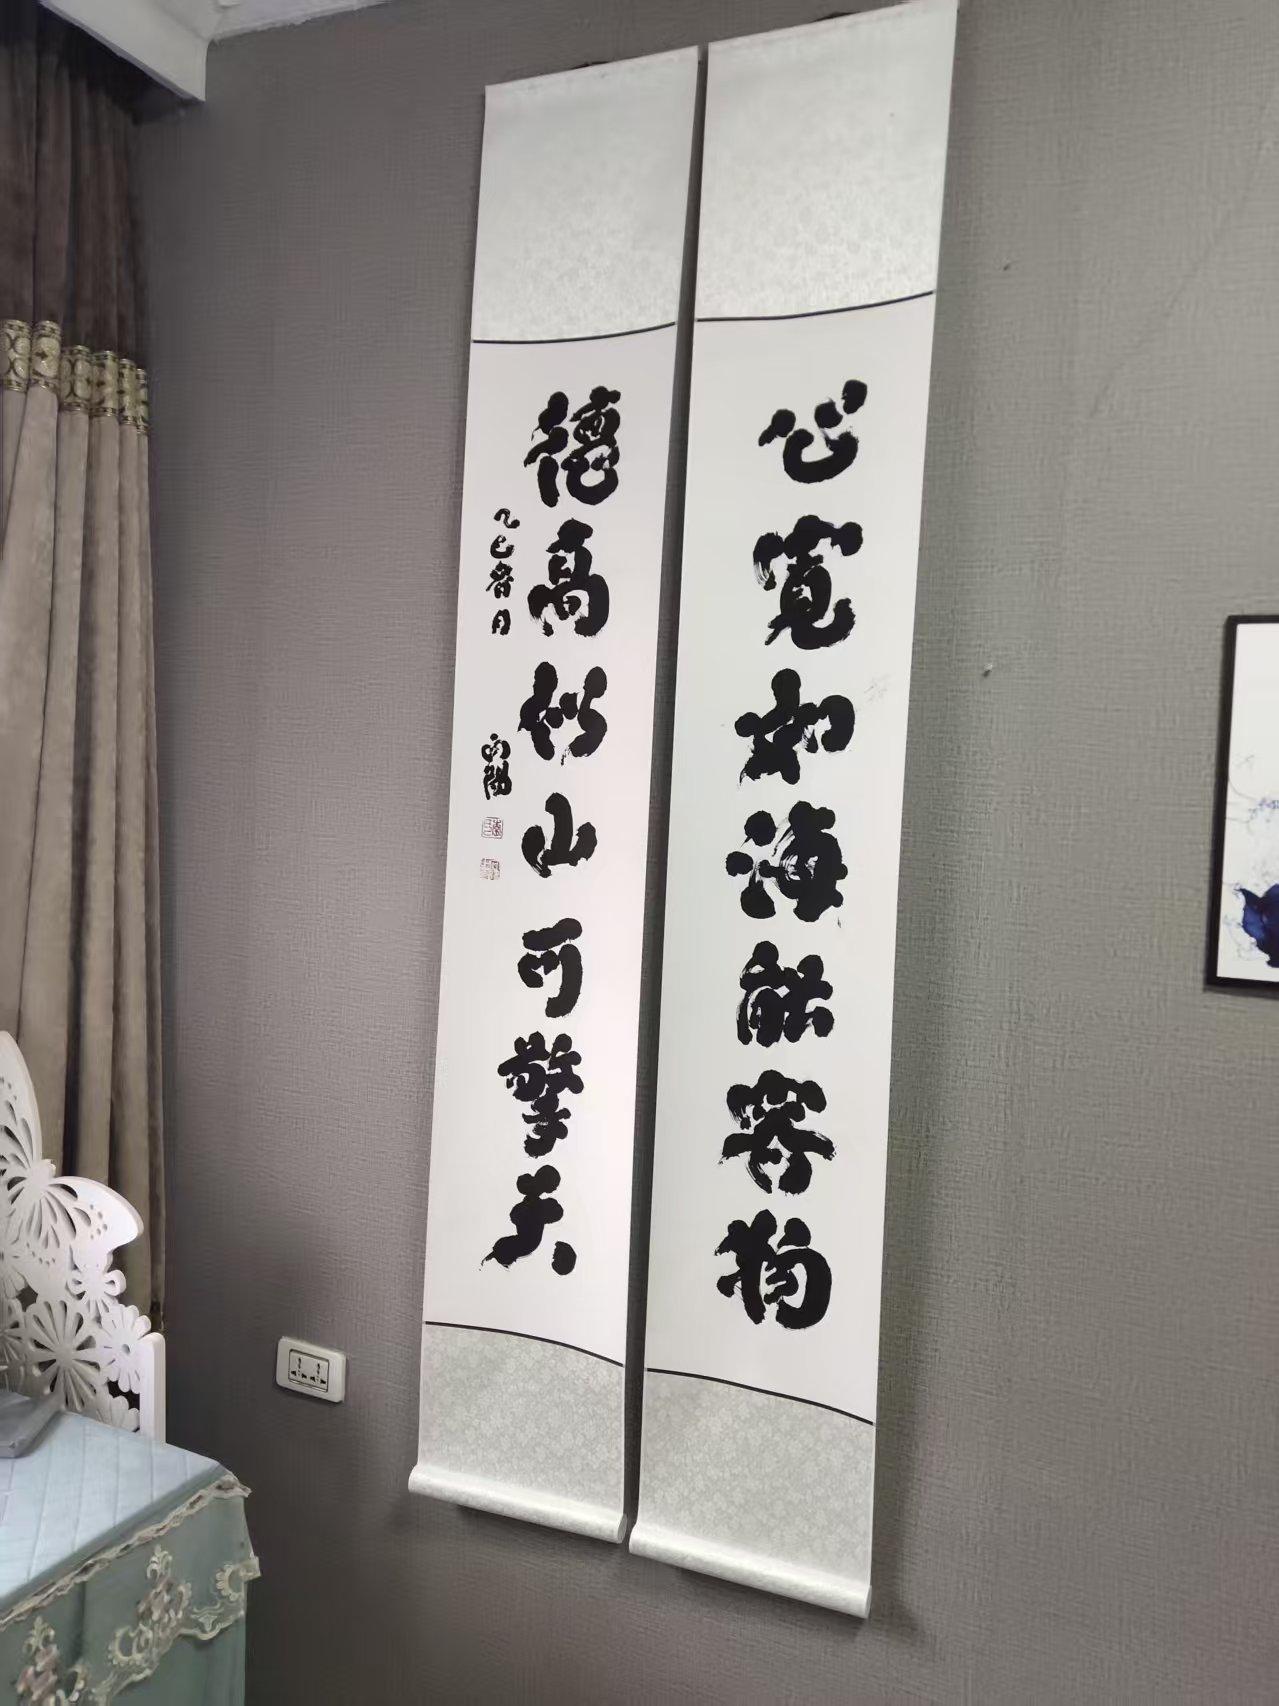 心寬如海能容物
德高似山可擎天
乙巳春月
向陽